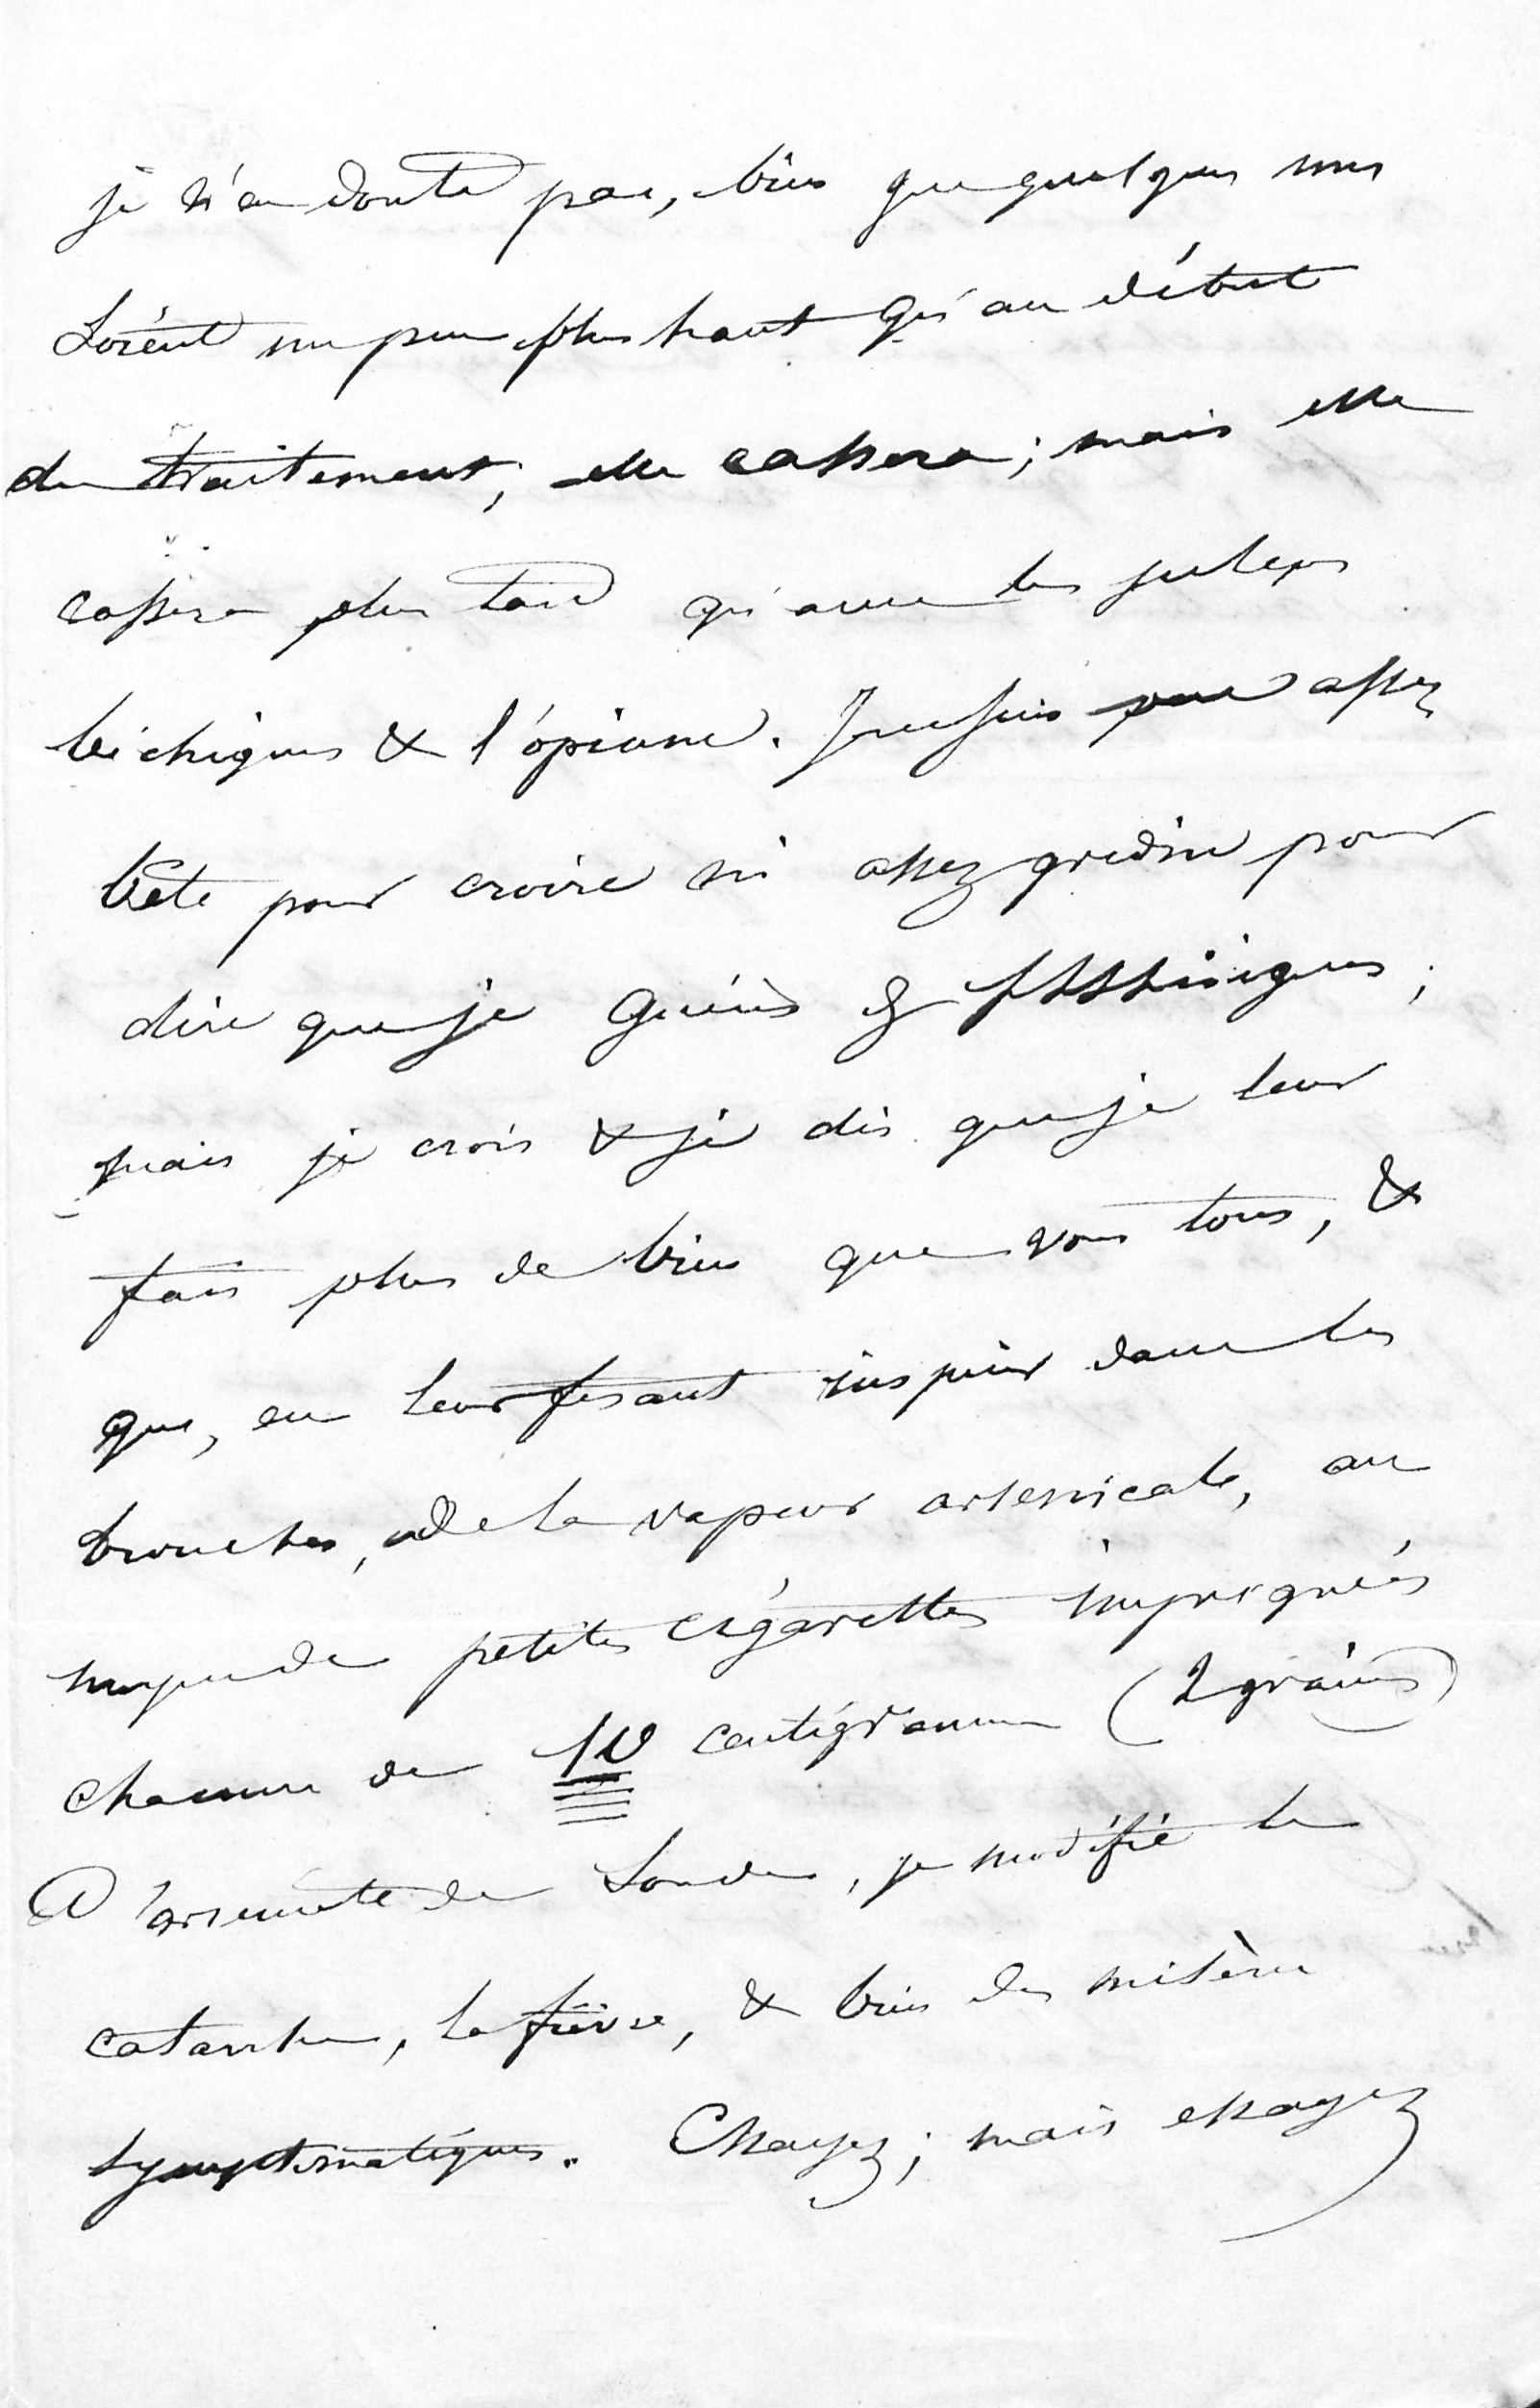 je n'en doute pas, bien que quelques unes
soient un peu plus haut qu'au début
du traitement; elle cassera; mais elle
cassera plus tard qu'avec les juleps
béchiques & l'opium. Je ne suis pas assez
bête pour croire ni assez gredin pour
dire que je guéris les phthisiques;
mais je crois & je dis que je leur
fais plus de bien que vous tous, &
que, en leur fesant inspirer dans les
bronches, de la vapeur arsenicale, au
moyen de petites cigarettes imprégnées
chacune de 10 centigrammes (2 grains)
d'arseniate de soude, je modifie le
catarrhe, la fièvre, & bien des misères
symptomatiques. Essayez; mais essayez